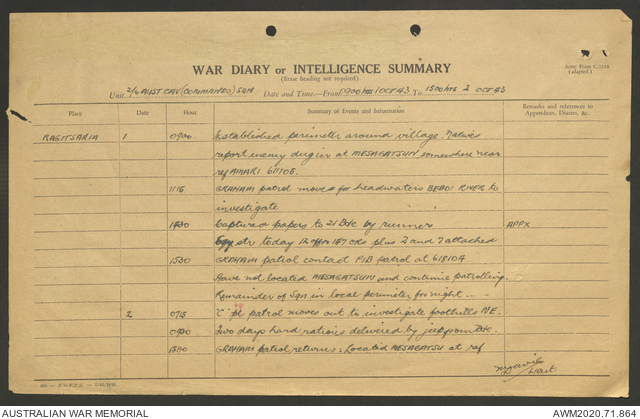 WAR DIARY or INTELLIGENCE SUMMARY
Army Form C.2118
(adapted.)
(Erase heading not required).
Unit 2/6 AUST CAV (COMMANDO) SQN Date and Time—From 0900 hrs 1 OCT 43 To 1500 hrs 2 OCT 43
Place Date Hour Summary of Events and Information Remarks and references to Appendices, Diaries, &c.
RAGITSARIA 1 0900 Established perimeter around village. Natives
report enemy dug in at MESAGATSUN somewhere near
ref AMARI 611106.
1115 GRAHAM patrol moves for headwaters BEBOI RIVER to
investigate
Captured papers to 21 Bde by runner APPX
str today 12 offrs 187 ORs plus 2 and 7 attached
1500 GRAHAM patrol contact PIB patrol at 618104
Have not located MESAGATSUN and continue patrolling.
Remainder of Sqn in local perimeter for night
2 0715 "C" pl patrol moves out to investigate foothills NE.
0900 Two days hard rations delivered by jeep from Bde.
1500 GRAHAM patrol returns: Located MESAGATSU at ref
AUSTRALIAN WAR MEMORIAL
AWM2020.71.864